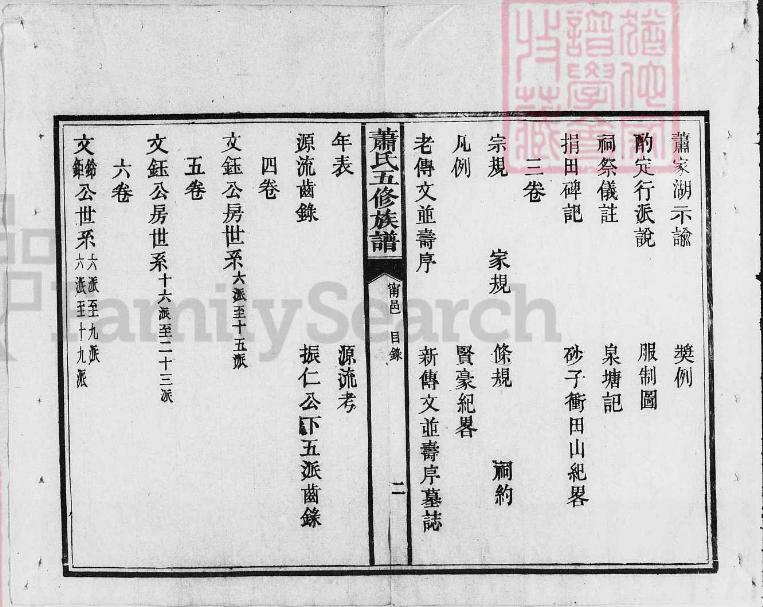 蕭家湖示諭 獎例
酌定行派說 服制圖
祠祭儀註 泉塘記
捐田碑記 砂子衝田山紀畧
三卷
宗規 家規 條規 祠約
凡例 賢豪紀畧
老傳文並壽序 新傳文並壽序墓誌
蕭氏五修族譜 甯邑 目錄 二
年表 源流考
源流齒錄 振仁公下五派齒錄
四卷
文鈺公房世系六派至十五派
五卷
文鈺公房世系十六派至二十三派
六卷
文鈴公世系六派至九派
文鉅公世系六派至十九派
FamilySearch